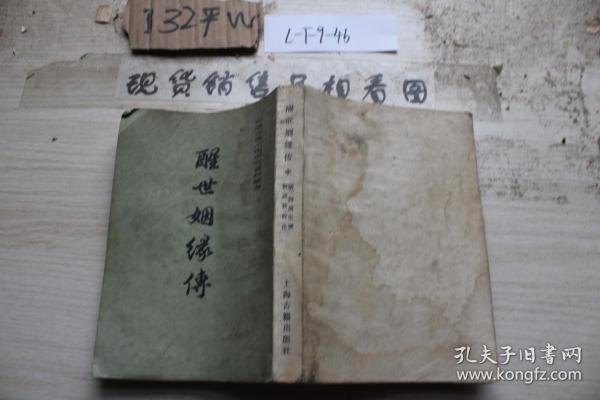 132平W
L-F-9-46
现货销售品相看图
醒世姻缘傳
醒世姻缘传 中
上海古籍出版社
孔夫子旧书网
www.kongfz.com